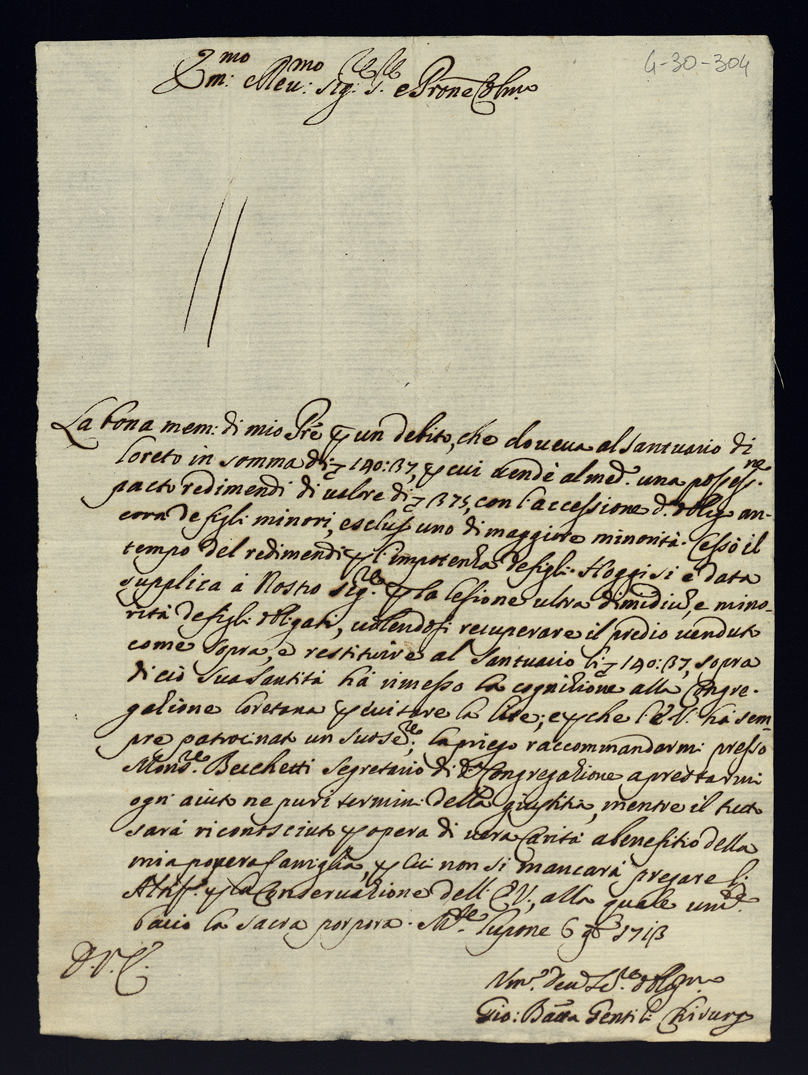 4-30-304
Em:mo e Reu:mo Sig:re S.re e Prone Col.mo
La bona mem: di mio Pre p un debito, che doueua al Santuario di
Loreto in somma di 140:37, p cui uendè al med.° una possess.ne
pacto redimendi di ualore di 1375, con l'accessione d. oblig. an-
cora de figli minori, esclus. uno di maggiore minorità. Cessò il
tempo del redimendi p l'impotenza de figli. Hoggi si è data
supplica à Nostro Sig.re p la lesione ultra dimidiũ, e mino-
rità de figli obligati, uolendosi recuperare il predio uenduto
come sopra, e restituire al Santuario li 140:37, sopra
di ciò Sua Santità hà rimesso la cognizione alla Congre-
gazione Loretana p euitare la lite; e p che l'E.V. hà sem-
pre patrocinat un suo se.re la priego raccommandarmi presso
Mons.re Becchetti Segretario di d.a Congregazione a prestarmi
ogni aiuto ne puri termini della giustitia, mentre il tutto
sarà riconosciuto p opera di uera Carità a benefitio della
mia pouera famiglia, p cui non si mancarà pregare l'
Altiss.° p la Conseruazione dell' E.V., alla quale um.te
bacio la sacra porpora. M.te Lupone 6 9bre 1713
D.V.E.
Um.° Deu.° Se.re oblig.mo
Gio: Batta Gentili Chirurgo